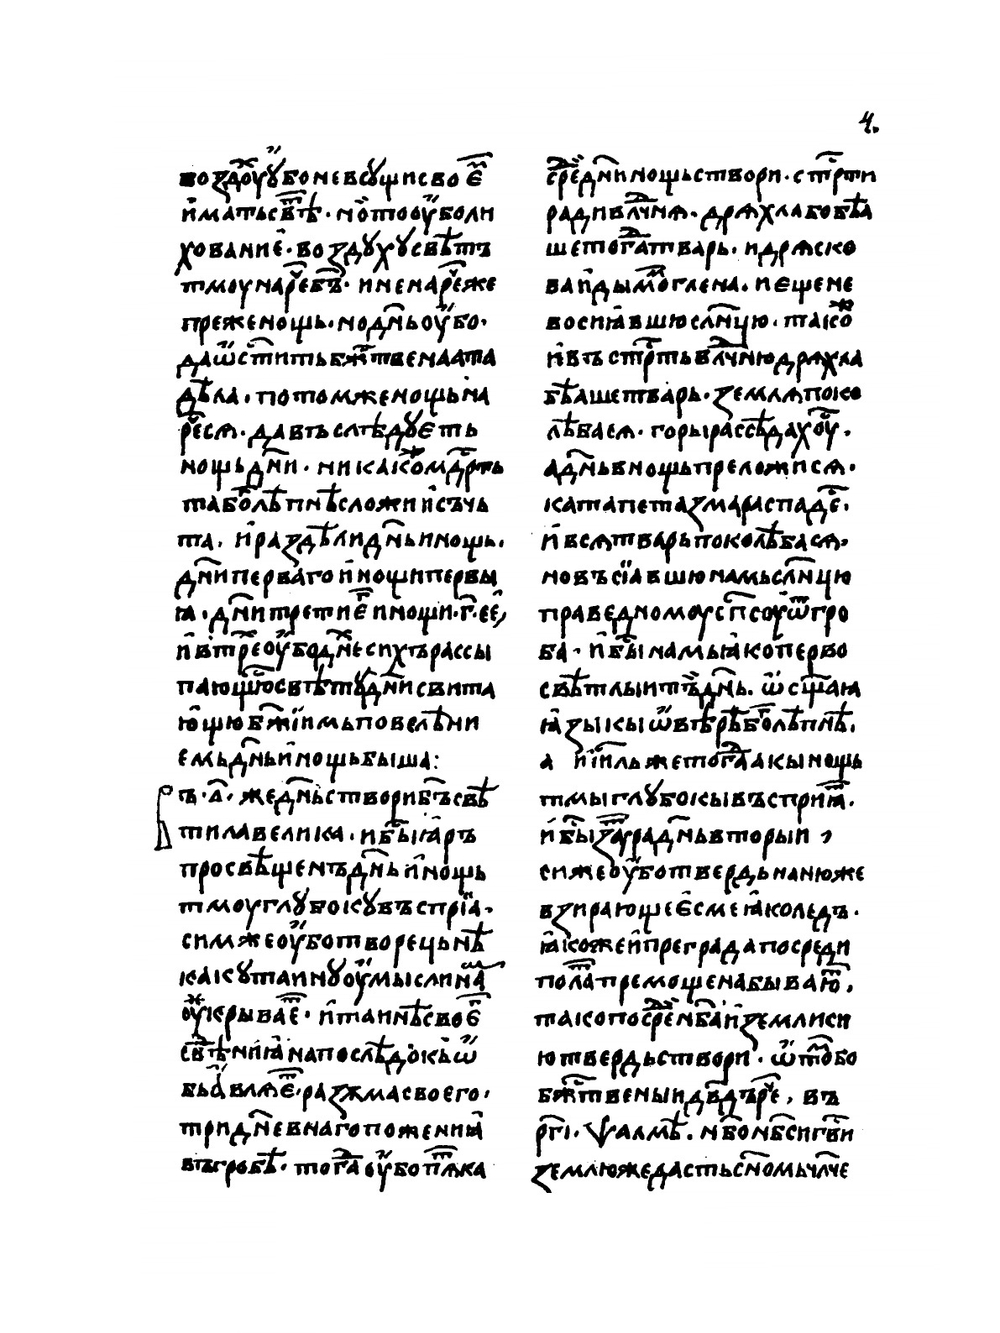 4.
воздоⷯуꙋбоневсѹщисвоеⷨ҇
иматьсвⷮѣ. нотооуболи
хование. воздухусвѣтъ
тмоунареⷱбⷭъ. именареⷱже
прежденощь. нодн҃ьоубо.
даѿстⷭитьбжⷭ҇твенаата
дѣла. потомженощьна
реⷱся. давъслѣдуеть
нощьдн҃и. никакоⷤмдⷭрть
таболⷢѣпнѣсложиисъчь
та. ираздѣлидн҃ьинощь.
дн҃ипервагоинощипервы
ꙗ. дн҃итретиеⷢ҇инощи.г҃.ее,
ивтреⷯоубоднⷯесихърассы
пающюⷭсвѣтѹдн҃исвита
ющюбж҃іимьповелѣни
емьдн҃ьинощьбыша:
ъ.д҃. жедн҃ьствориб҃ъсвѣ
тилавелика. ибⷭыꙗръ
просвѣщенъдн҃ьинощь
тмоуглубокувъспріꙗ.
симжеоуботворецьнѣ
какутаинуоумыслина
оуⷤкрываеⷮ. итаинѣсвоеⷢ
свⷮѣниꙗнапослѣдокьѿ
бьꙗвляеⷮ. разꙋмасвоего.
тридн҃евнагоположениꙗ
вьгробѣ. тогⷣаоубопⷮлька
среⷣдн҃инощьствори. стрⷭ҇ти
радивлⷣчня. дряхлабобѣа
шетогⷣатварь. идряско
ваидымⷨоглена. иещене
восиꙗвшюслн҃цю. такоⷤ
ивъстрⷭ҇тьвлⷣчнюдряхла
бѣашетварь. земляпоко
лѣбаея. горырассѣдахоуⷭ.
адн҃ьвнощьпреложися.
катапетазмараспадеⷭ.
ивсятварьпоколѣбася.
новъсіавшюнамьслн҃цю
праведномоуспⷭсоуѿгро
ба. ибⷭынамьꙗкоперво
свѣтлыитъⷤдн҃ь. ѿсщⷣаꙗ
ꙗзыкыѿвѣⷮрѣболⷢѣпнѣ.
а иіи҃льжетогⷣаакынощь
тмыглубокывъсприꙗⷮ.
ибⷭызаⷮⷬградн҃ьвторыи ,
сижеоуботвердьнанюже
взирающеесмеꙗколедъ.
ꙗкожеипреградапосреди
полаⷮпремощенабываюⷮ.
такопосреⷣнб҃аиземлиси
ютвердьствори. ѿтоⷨбо
бжⷭ҇твеныидв҃дъреⷱ, въ
рг҃і. ѱалмѣ. нб҃онбⷭсигв҃и
землюжедастьсн҃омьчл҃че